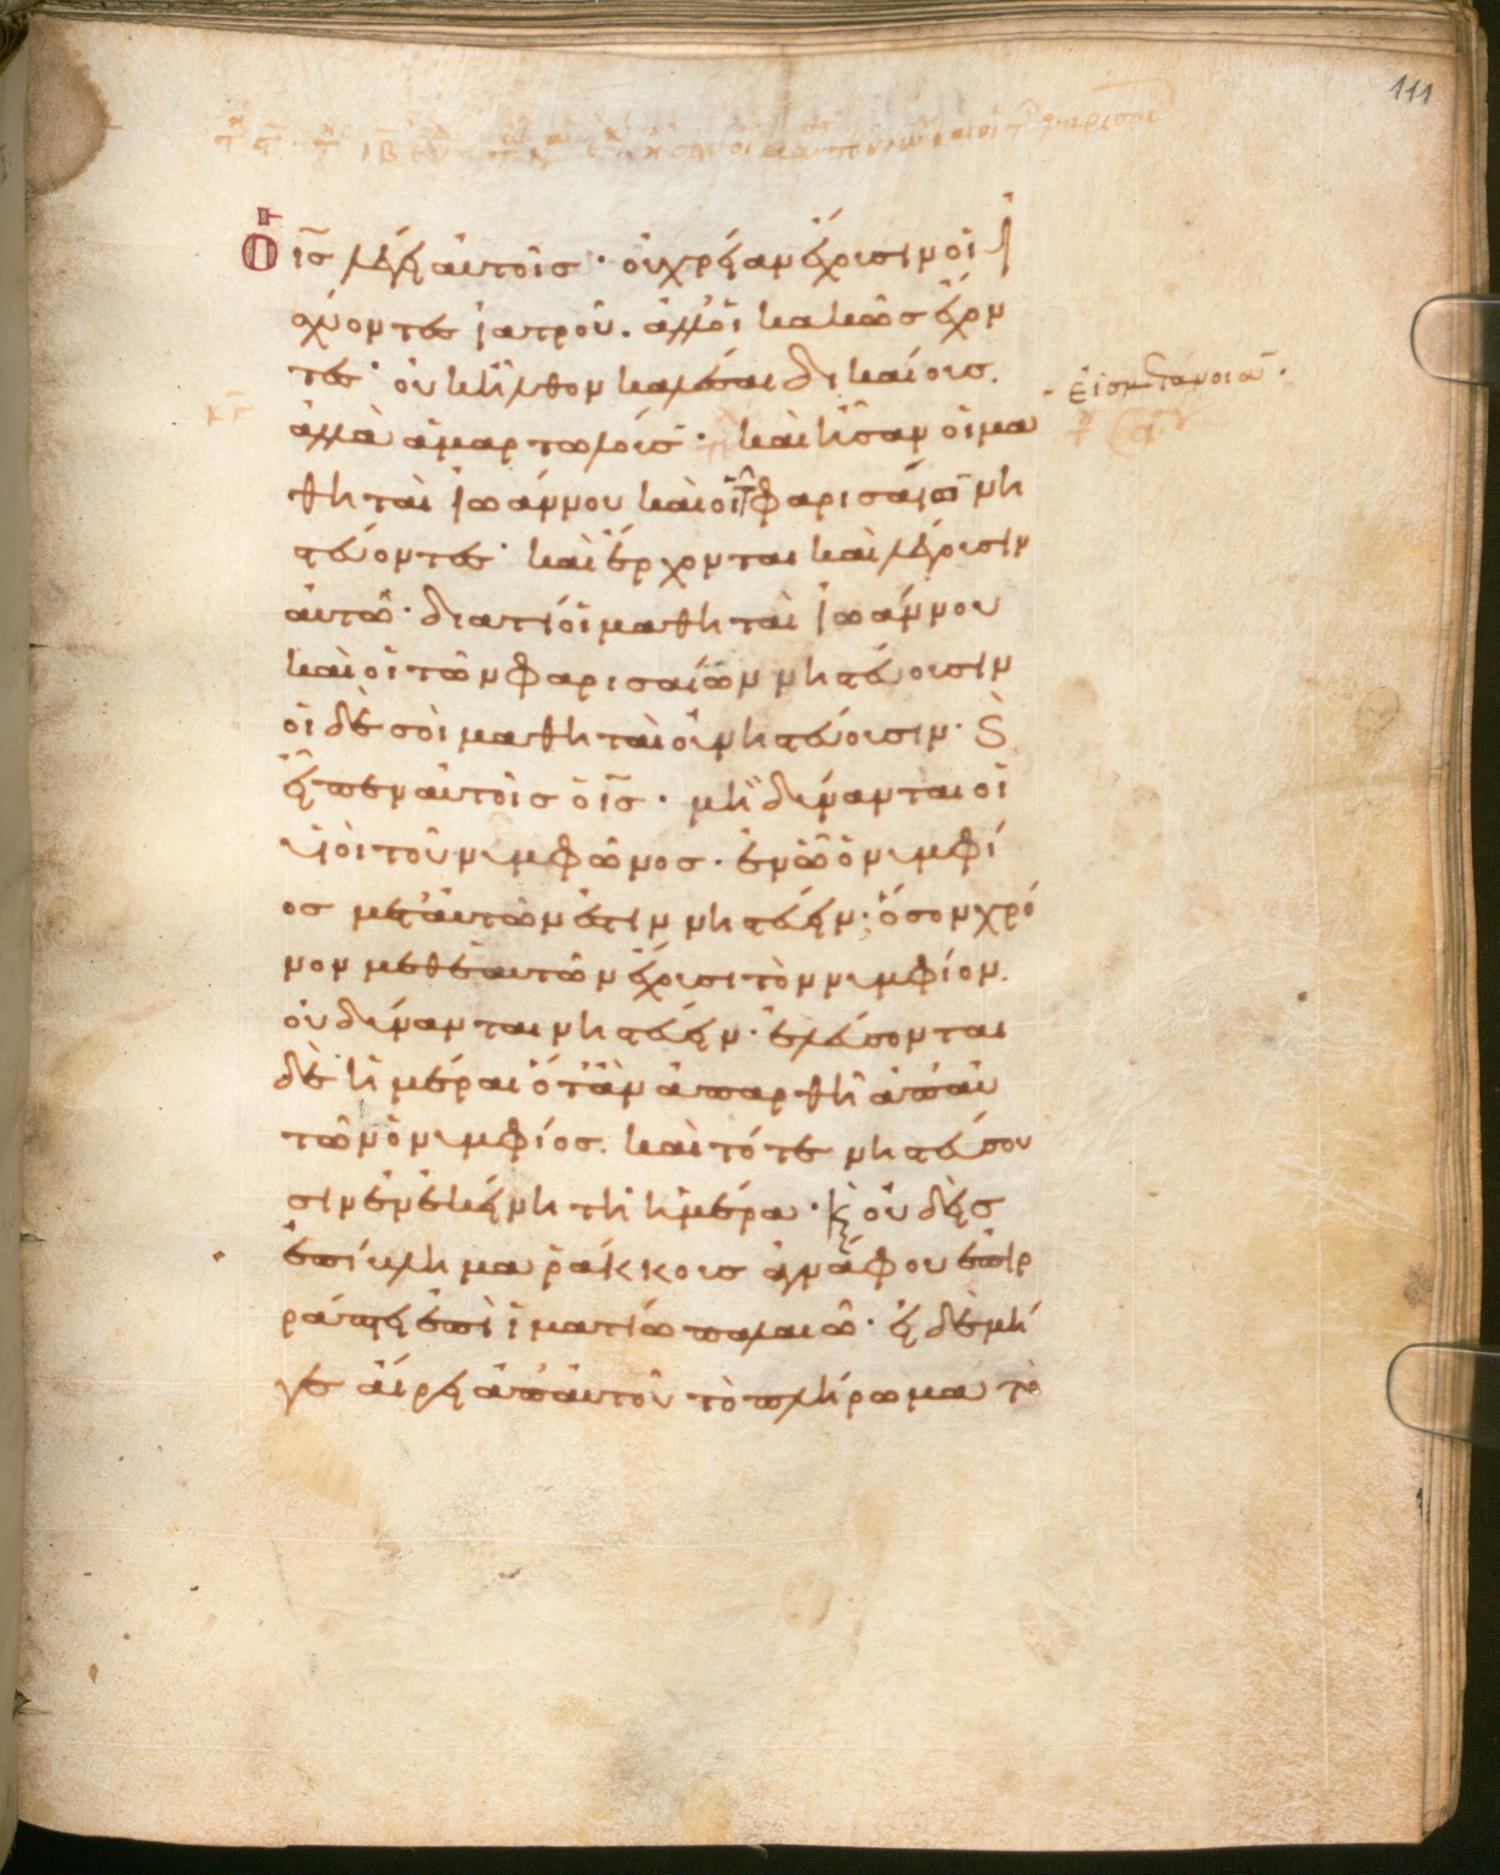 111
Ὁ ις λέγει αὐτοῖς · οὐ χρείαν ἔχουσιν οἱ ἰ
σχύοντες ἰατροῦ. ἀλλ' οἱ κακῶς ἔχον
τες · οὐκ ἦλθον καλέσαι δικαίους.
εἰς μετάνοιαν ·
ἀλλὰ ἁμαρτωλούς · καὶ ἦσαν οἱ μα
θηταὶ ἰωάννου καὶ οἱ τῶν φαρισαίων νη
στεύοντες · καὶ ἔρχονται καὶ λέγουσιν
αὐτῶ · διατί οἱ μαθηταὶ ἰωάννου
καὶ οἱ τῶν φαρισαίων νηστεύουσιν
οἱ δὲ σοὶ μαθηταὶ οὐ νηστεύουσιν · Ϛ
εἶπεν αὐτοῖς ὁ ις · μὴ δύνανται οἱ
υἱοὶ τοῦ νυμφῶνος · ἐν ᾧ ὁ νυμφί
ος μετ' αὐτῶν ἐστιν νηστεύειν; ὅσον χρό
νον μεθ' ἑαυτῶν ἔχουσι τὸν νυμφίον.
οὐ δύνανται νηστεύειν · ἐλεύσονται
δὲ ἡμέραι ὅταν ἀπαρθῆ ἀπ' αὐ
τῶν ὁ νυμφίος. καὶ τότε νηστεύσου
σιν ἐν ἐκείνη τῆ ἡμέρα · κ οὐδεὶς
ἐπίβλημα ῥάκκους ἀγνάφου ἐπιρ
ράπτει ἐπὶ ἱματίω παλαιῶ · εἰ δὲ μή
γε αἴρει ἀπ' αὐτοῦ τὸ πλήρωμα τὸ